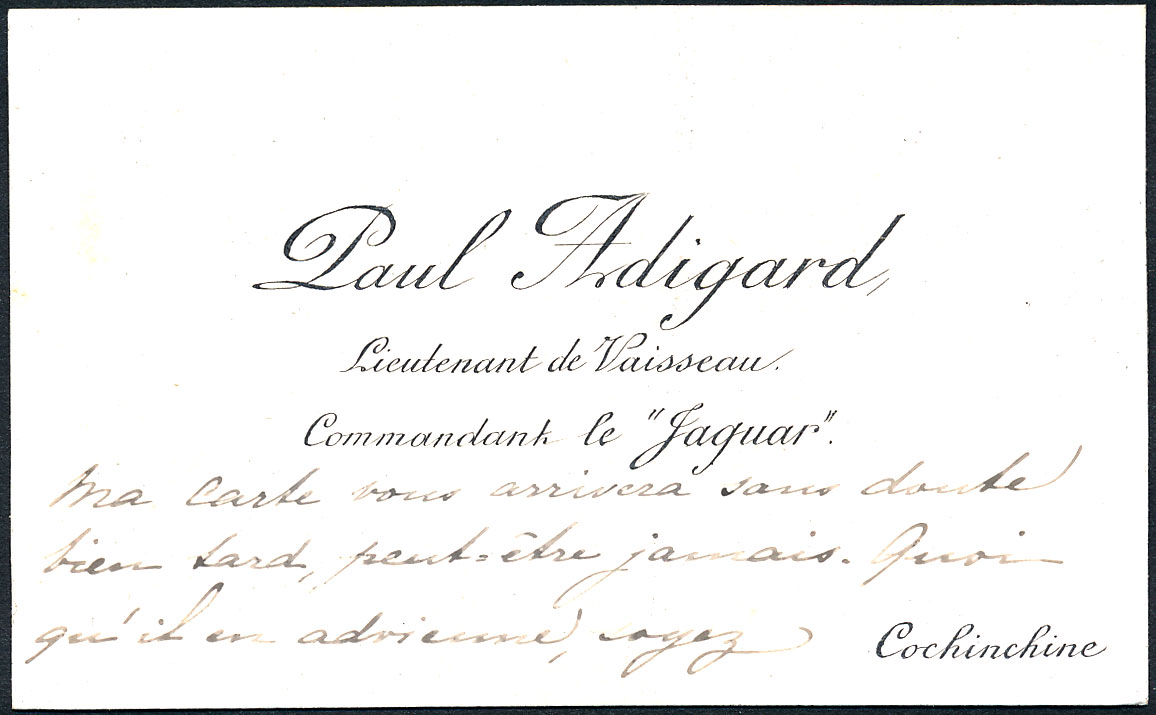 Paul Adigard,
Lieutenant de Vaisseau.
Commandant le "Jaguar".
Ma carte vous arrivera sans doute
bien tard, peut=être jamais. Quoi
qu'il en advienne, soyez
Cochinchine